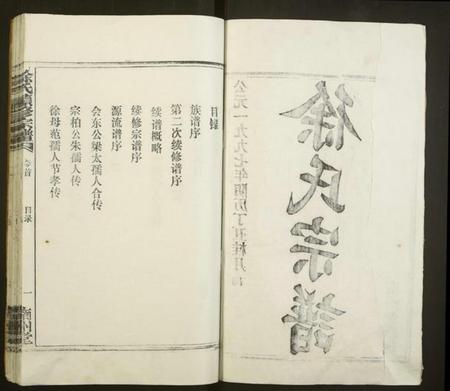 徐氏宗谱
公元一九九七年随历丁丑桂月
目录
族谱序
第二次续修谱序
续谱概略
续修宗谱序
源流谱序
会东公梁太孺人合传
宗柏公朱孺人传
徐母范孺人节孝传
卷首
目录
一